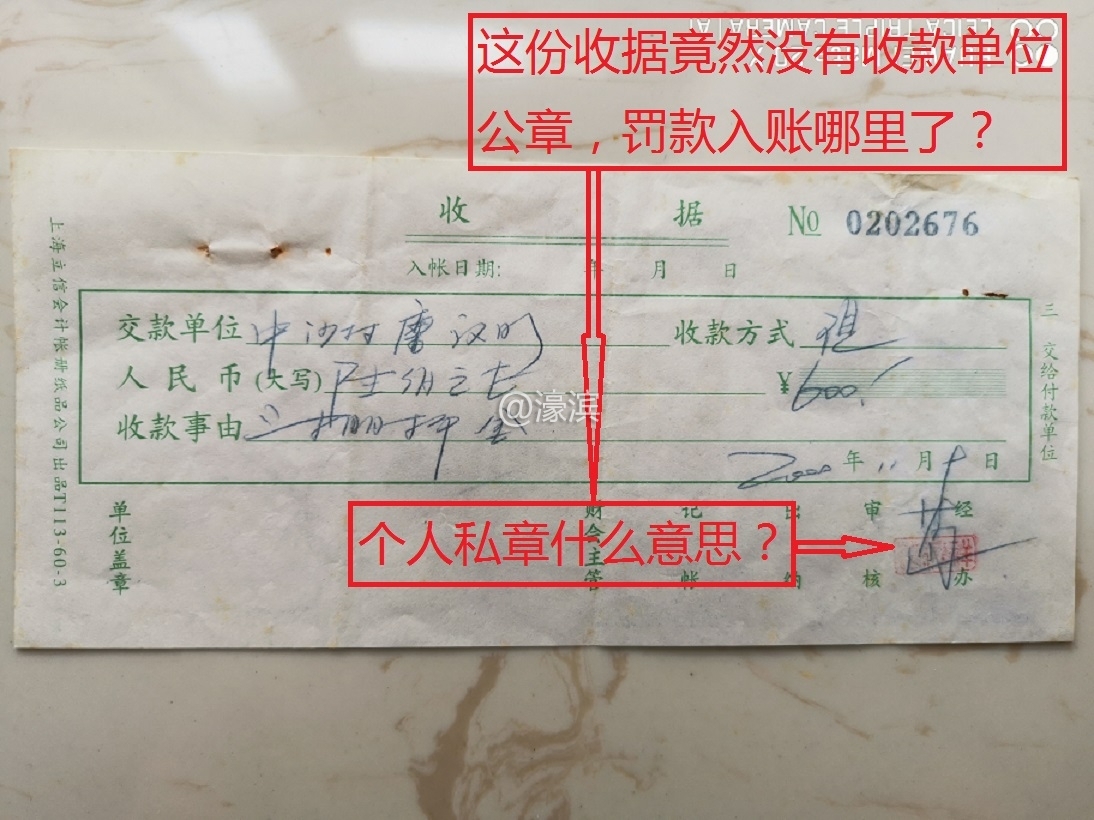 这份收据竟然没有收款单位
公章，罚款入账哪里了？
收 据 № 0202676
入帐日期： 年 月 日
交款单位 中沙村唐汉明 收款方式
人民币(大写) ¥600
收款事由
2000年11月 日
@濠滨
三 交给付款单位
上海立信会计帐册纸品公司出品T113-60-3
单位盖章
财会主管
记帐
出纳
审核
经办
个人私章什么意思？